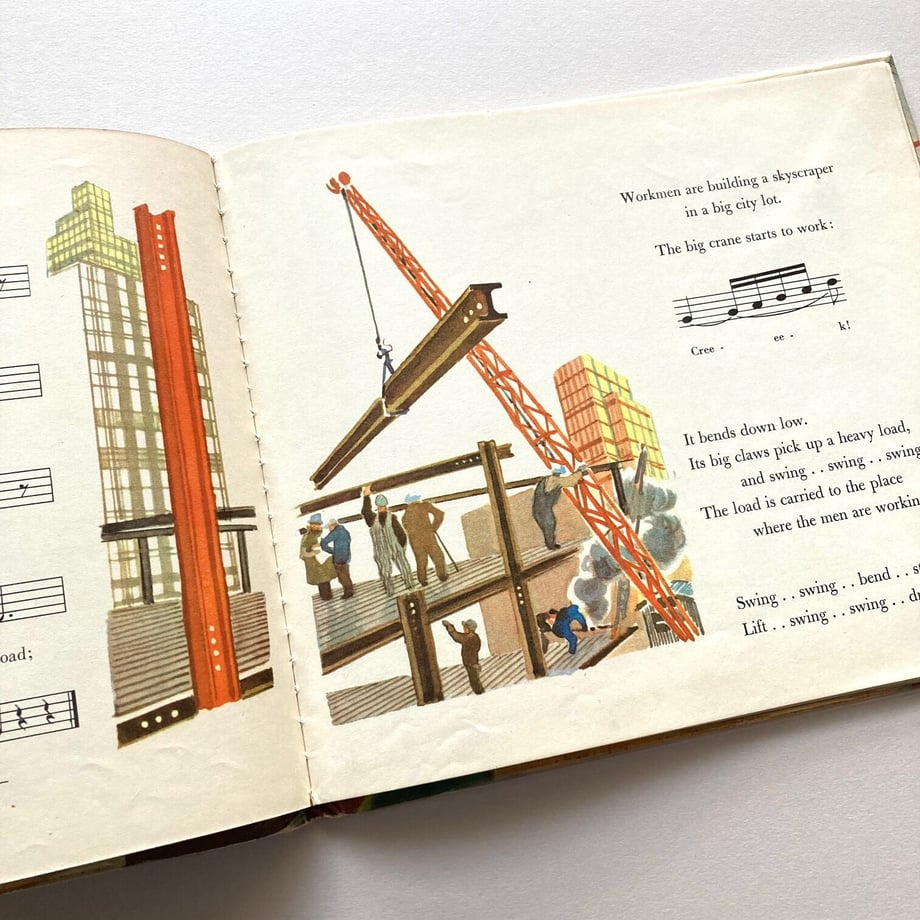 oad;
Workmen are building a skyscraper
in a big city lot.
The big crane starts to work:
Cree - ee - k!
It bends down low.
Its big claws pick up a heavy load,
and swing . . swing . . swing
The load is carried to the place
where the men are workin
Swing . . swing . . bend . . st
Lift . . swing . . swing . . d